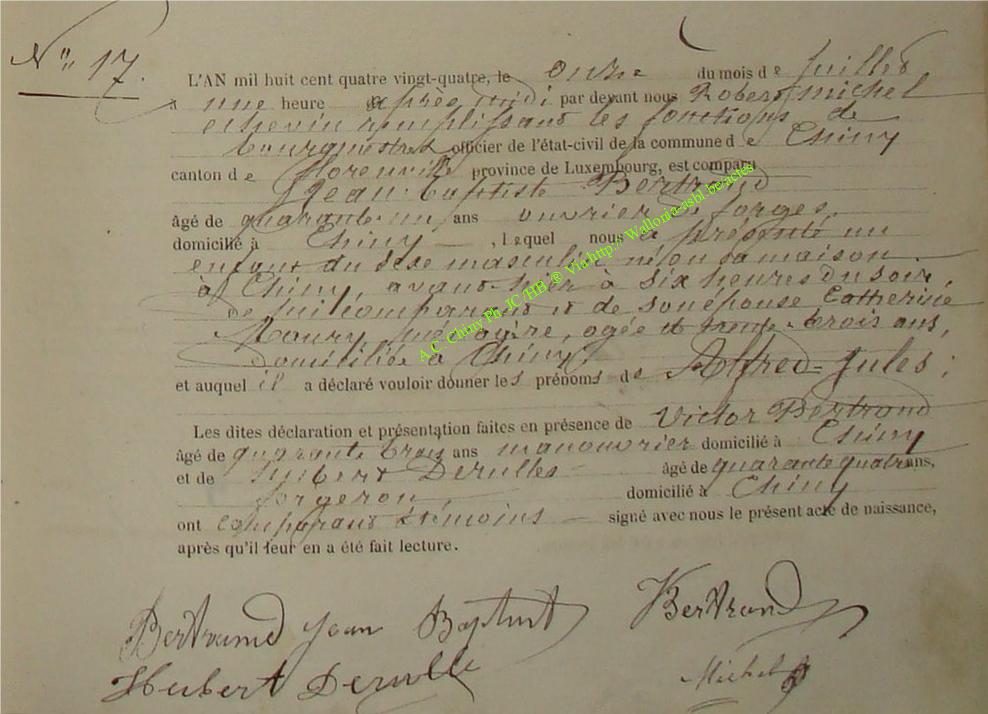 N° 17.
L'AN mil huit cent quatre vingt-quatre, le onze du mois de juillet
à une heure après midi par devant nous Robert Michel
echevin remplissant les fonctions de
bourgmestre officier de l'état-civil de la commune de Chiny
canton de florenville province de Luxembourg, est comparu
Jean-baptiste Bertrand
âgé de quarante-un ans ouvrier de forges,
domicilié à Chiny , lequel nous a présenté un
enfant du sexe masculin né en sa maison
à Chiny, avant-hier à six heures du soir,
de lui comparant et de son épouse Catherine
Maury, ménagère, agée de trente-trois ans,
domiciliée à Chiny.
et auquel il a déclaré vouloir donner les prénoms de Alfred-Jules ;
Les dites déclaration et présentation faites en présence de Victor Bertrand
âgé de quarante trois ans manouvrier domicilié à Chiny
et de Hubert Derulle âgé de quarante quatre ans,
forgeron, domicilié à Chiny
ont comparant & témoins signé avec nous le présent acte de naissance,
après qu'il leur en a été fait lecture.
Bertrand Jean Baptist VBertrand
Hubert Derulle Michel
A.C. Chiny Ph. JC /HB ® Via http:// Wallonia-asbl.be/actes